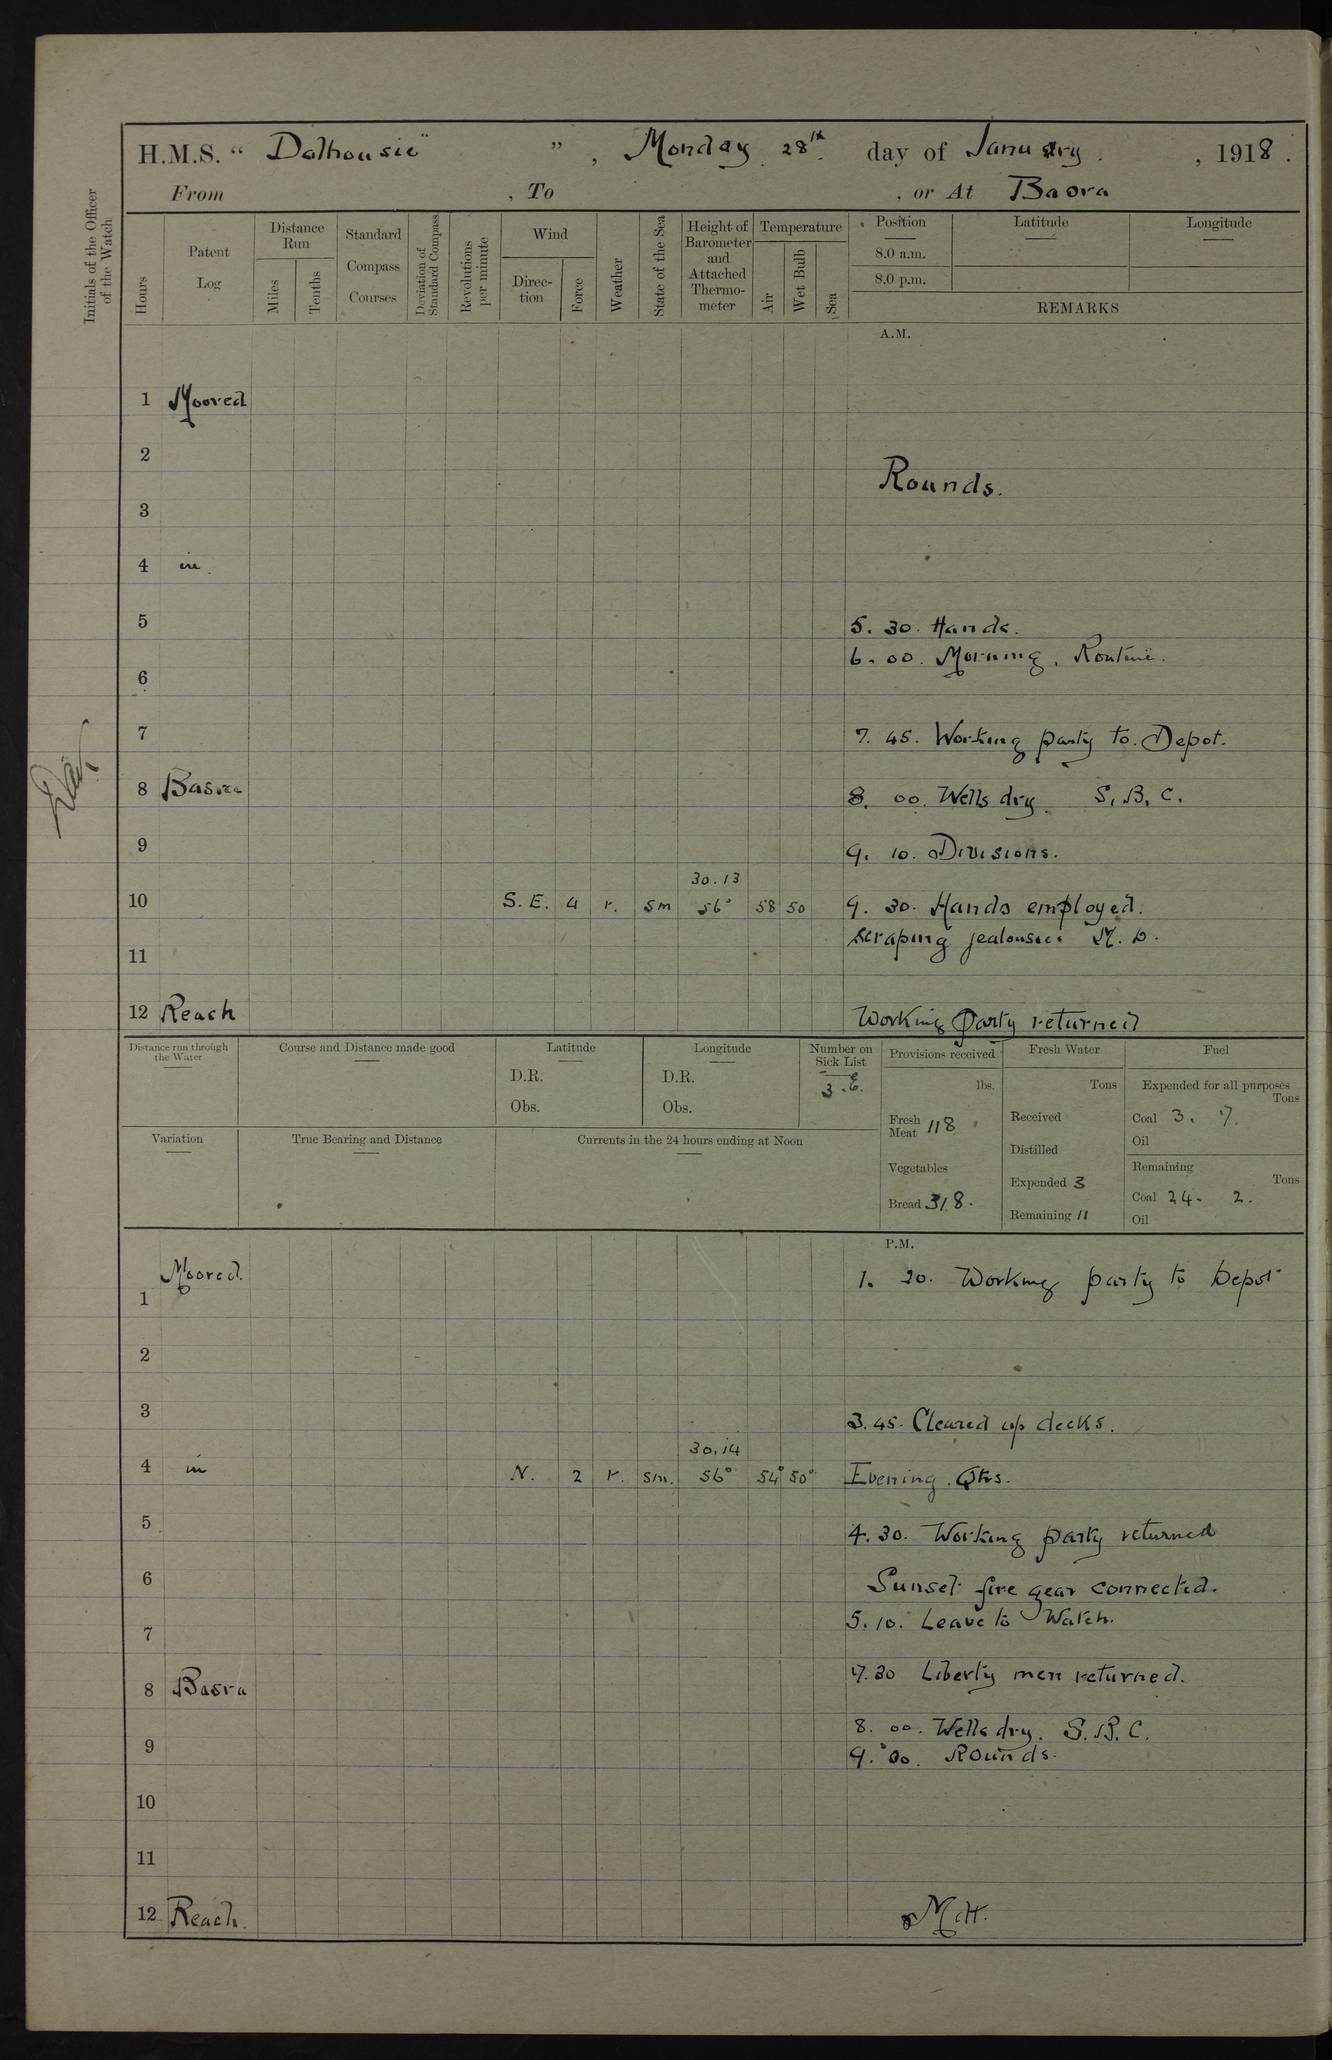 H.M.S. " Dalhousie " , Monday 28th day of January , 1918 .
From , To , or At Basra
Initials of the Officer of the Watch
Hours
Patent Log
Distance Run
Miles
Tenths
Standard Compass Courses
Deviation of Standard Compass
Revolutions per minute
Wind
Direction
Force
Weather
State of the Sea
Height of Barometer and Attached Thermometer
Temperature
Air
Wet Bulb
Sea
Position
8.0 a.m.
8.0 p.m.
Latitude
Longitude
REMARKS
A.M.
1 Moored
2
Rounds.
3
4 in
5 5. 30. Hands.
6. 00. Morning. Routine.
6
7 7. 45. Working party to Depot.
8 Basra 8. 00. Wells dry. S.B.C.
9 9. 10. Divisions.
30.13
10 S.E. 4 r. sm 56° 58 50 9. 30. Hands employed.
scraping jealousies
11
12 Reach Working Party returned
Distance run through the Water
Course and Distance made good
Latitude
D.R.
Obs.
Longitude
D.R.
Obs.
Number on Sick List
3.E.
Provisions received
lbs.
Fresh Meat 118
Vegetables
Bread 318.
Fresh Water
Tons
Received
Distilled
Expended 3
Remaining 11
Fuel
Expended for all purposes
Tons
Coal 3. 7.
Oil
Remaining
Tons
Coal 24. 2.
Oil
Variation
True Bearing and Distance
Currents in the 24 hours ending at Noon
P.M.
Moored. 1. 20. Working party to Depot
1
2
3 3.45. Cleared up decks.
30.14
4 in N. 2 r. sm. 56° 54° 50° Evening Qtrs.
5 4. 30. Working party returned
6 Sunset fire gear connected.
5. 10. Leave to Watch.
7
7.30 Liberty men returned.
8 Basra
8. 00. Wells dry. S.B.C.
9 9. 00. Rounds.
10
11
12 Reach.